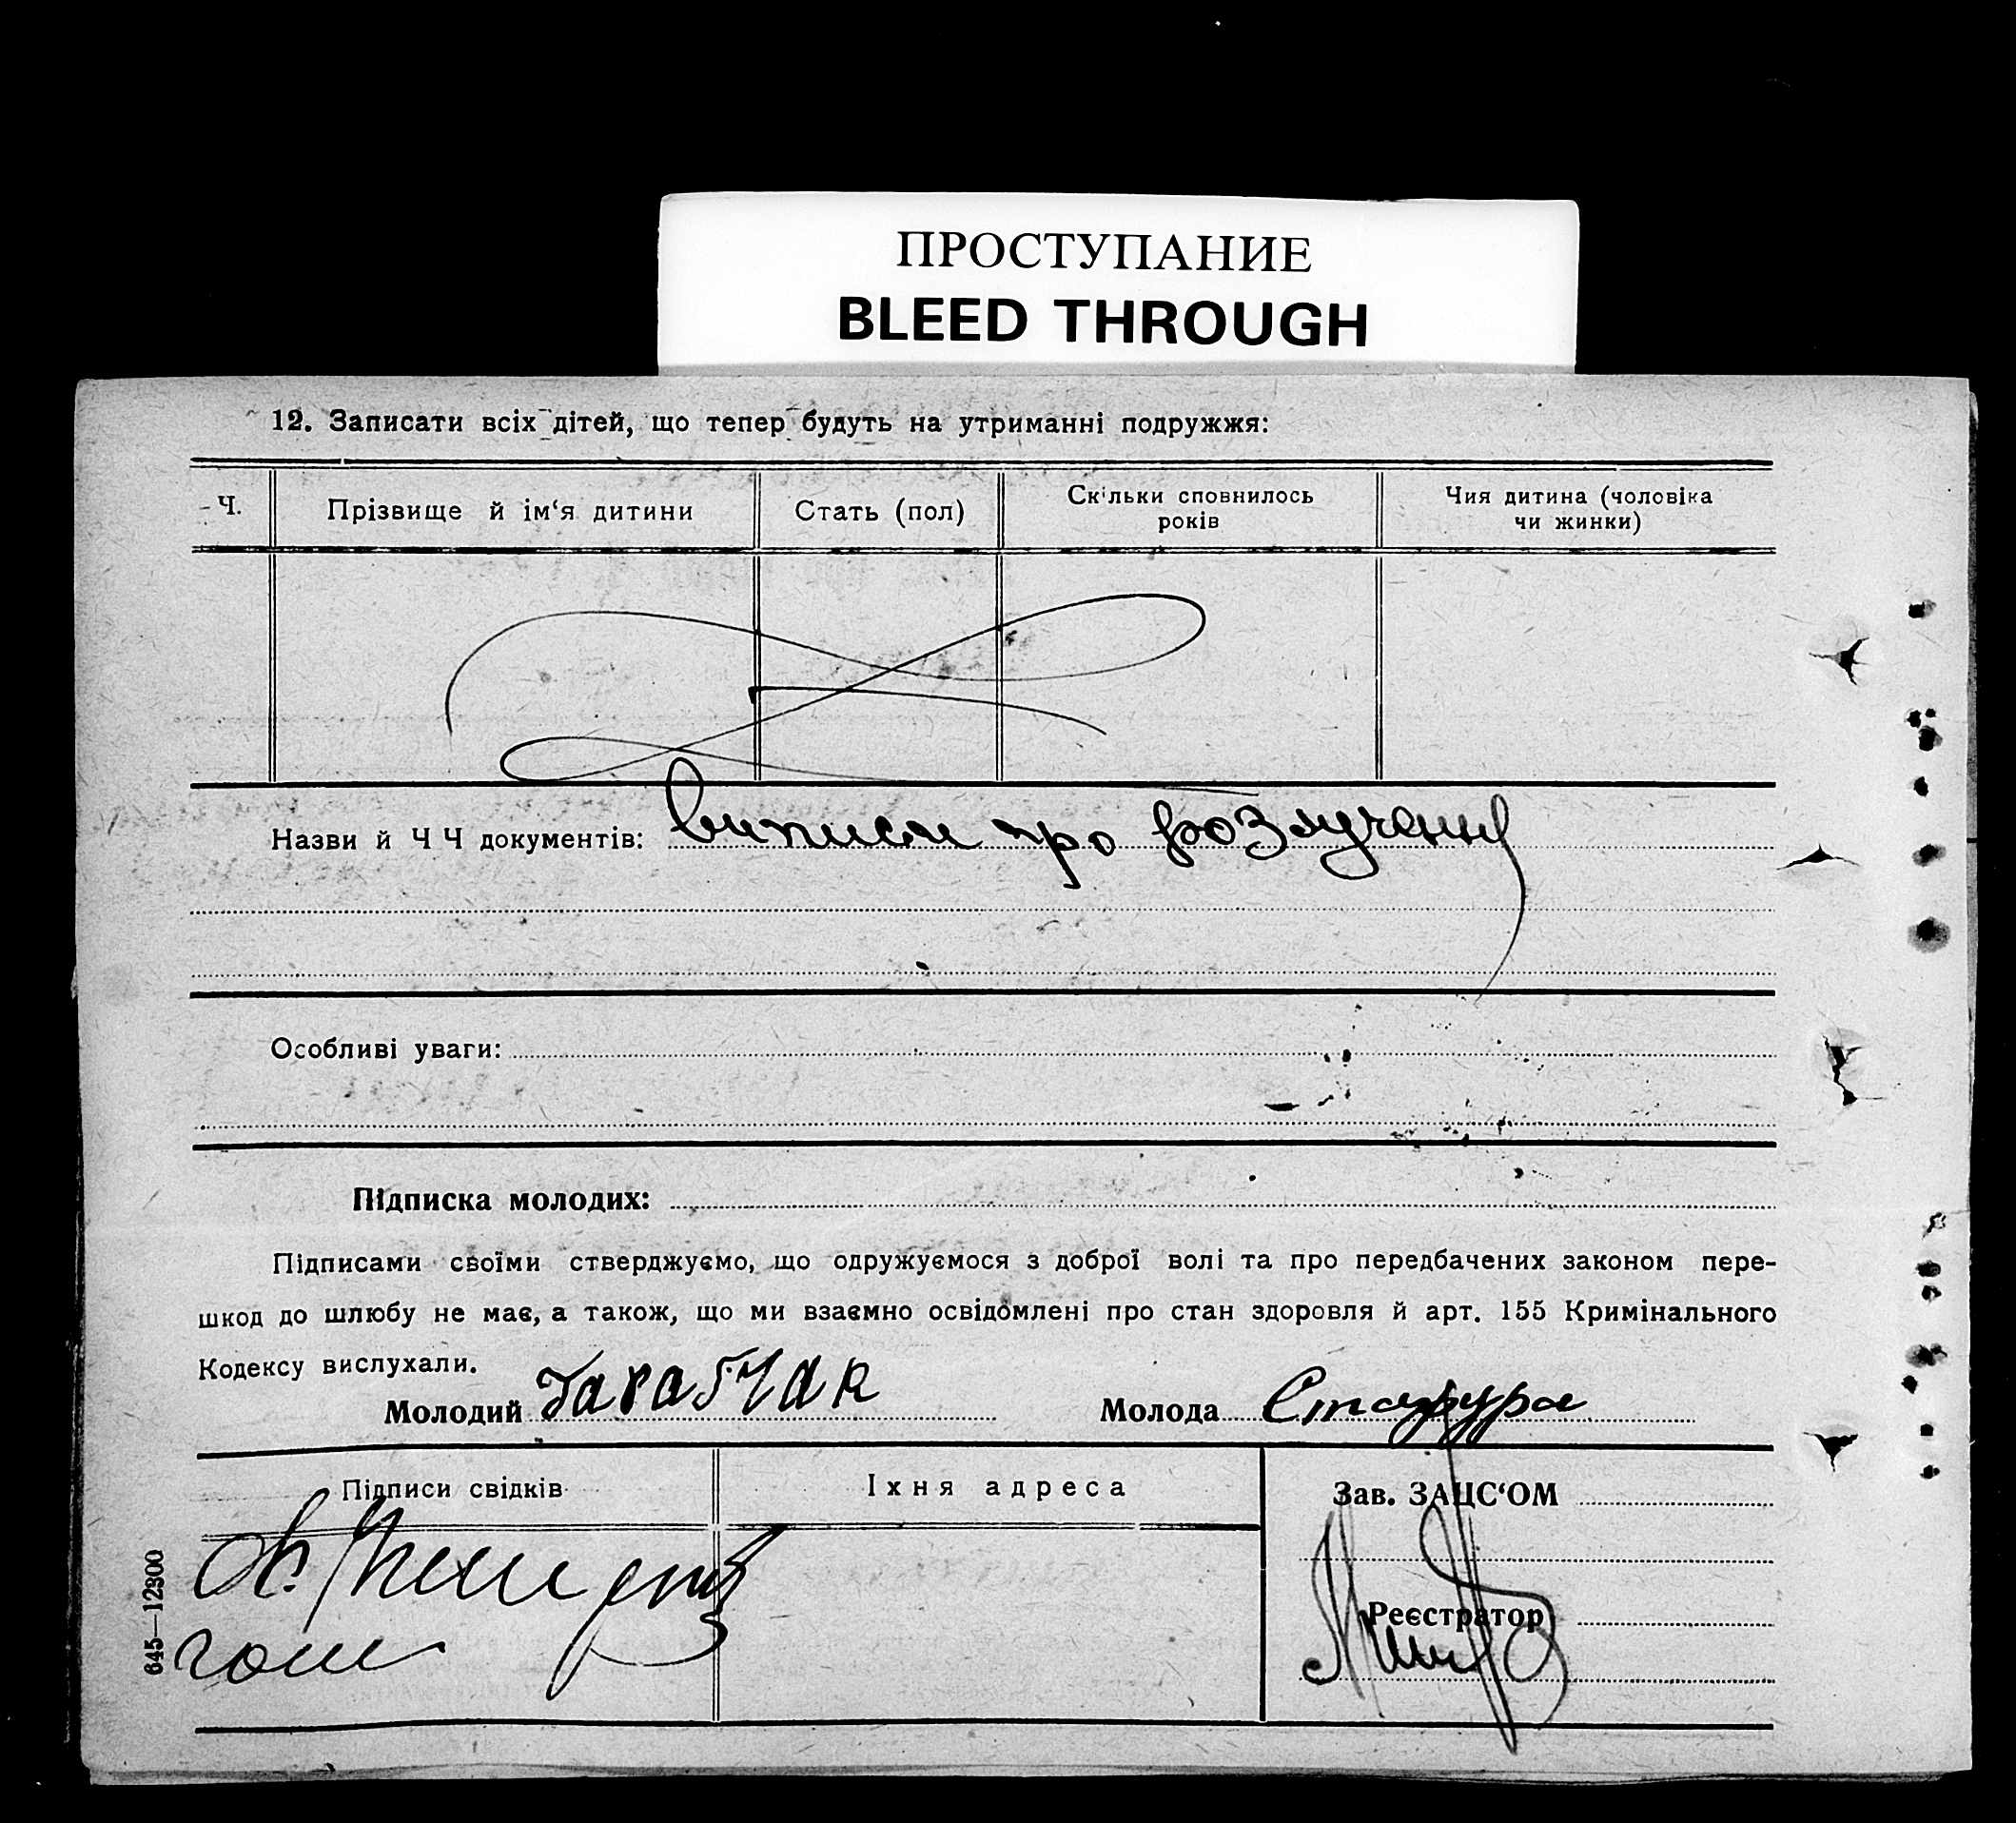 ПРОСТУПАНИЕ
BLEED THROUGH
12. Записати всіх дітей, що тепер будуть на утриманні подружжя:
Ч.
Прізвище й ім‘я дитини
Стать (пол)
Скільки сповнилось
років
Чия дитина (чоловіка
чи жинки)
Назви й Ч Ч документів: виписи про розлучення
Особливі уваги:
Підписка молодих:
Підписами своїми стверджуємо, що одружуємося з доброї волі та про передбачених законом пере-
шкод до шлюбу не має, а також, що ми взаємно освідомлені про стан здоровля й арт. 155 Кримінального
Кодексу вислухали.
Молодий
Молода
Підписи свідків
Їхня адреса
Зав. ЗАЦС‘ОМ
Реєстратор
645—12300